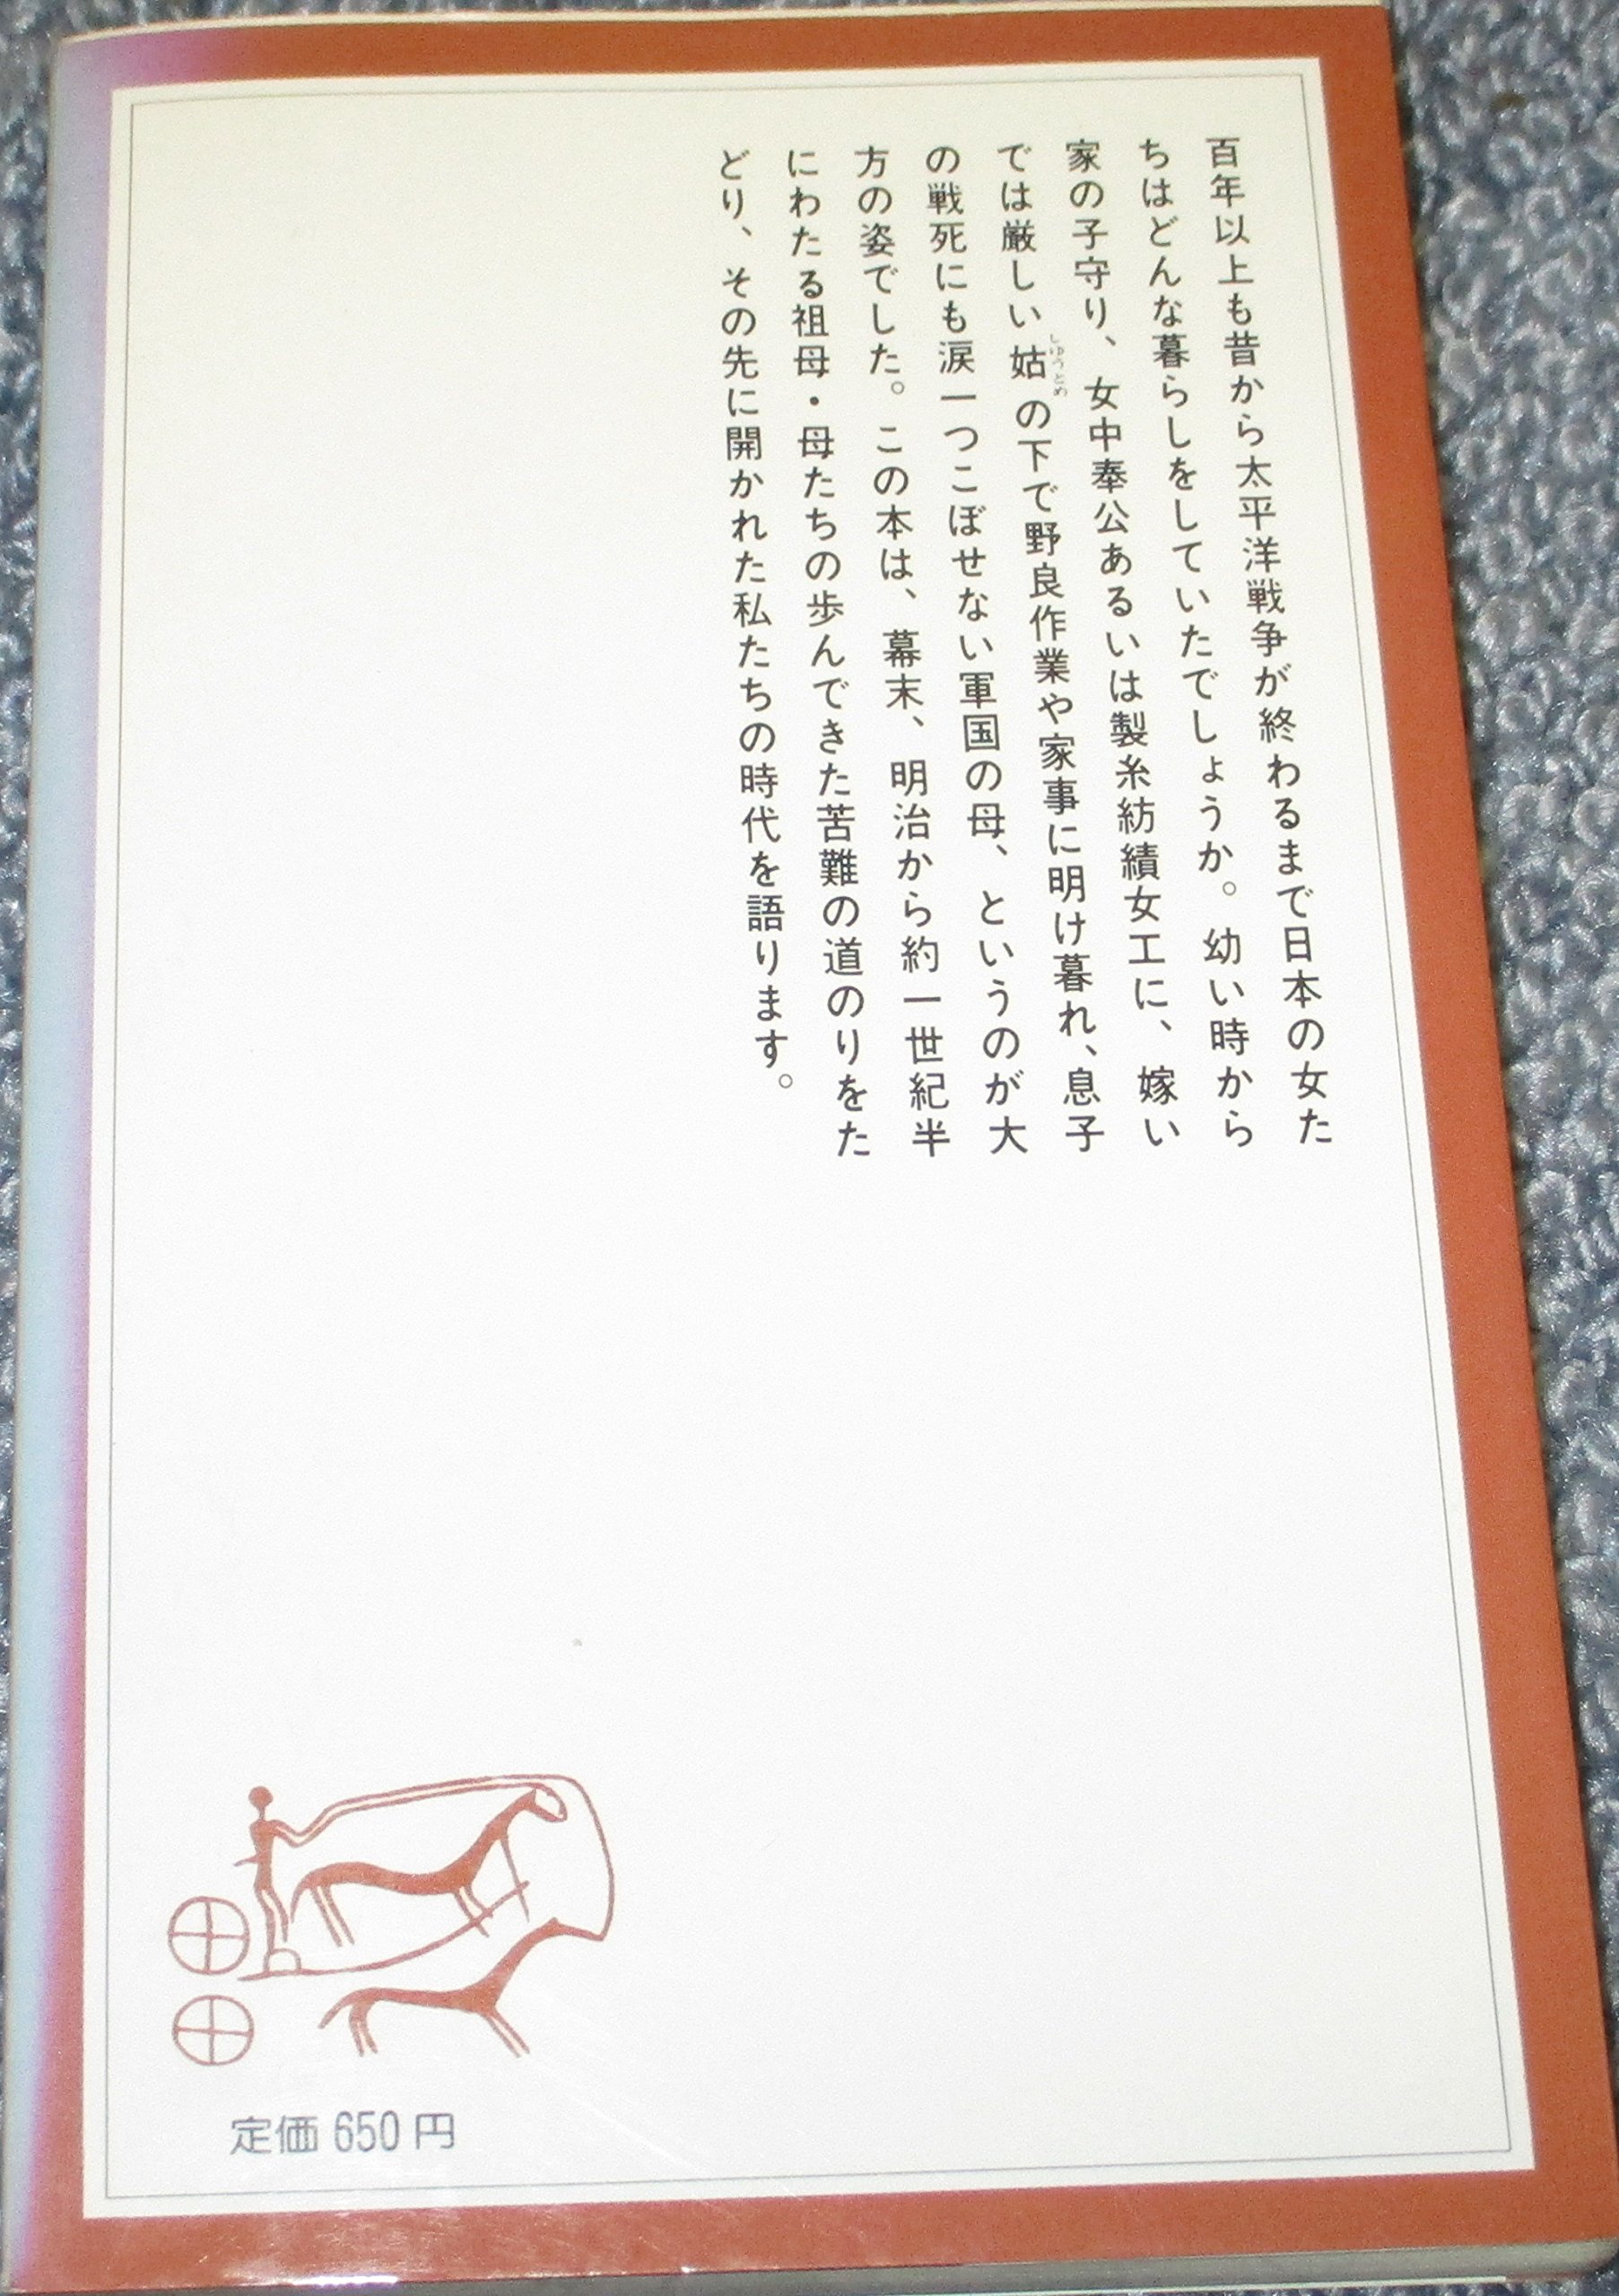 百年以上も昔から太平洋戦争が終わるまで日本の女た
ちはどんな暮らしをしていたでしょうか。幼い時から
家の子守り、女中奉公あるいは製糸紡績女工に、嫁い
では厳しい姑しゅうとめの下で野良作業や家事に明け暮れ、息子
の戦死にも涙一つこぼせない軍国の母、というのが大
方の姿でした。この本は、幕末、明治から約一世紀半
にわたる祖母・母たちの歩んできた苦難の道のりをた
どり、その先に開かれた私たちの時代を語ります。
定価 650 円